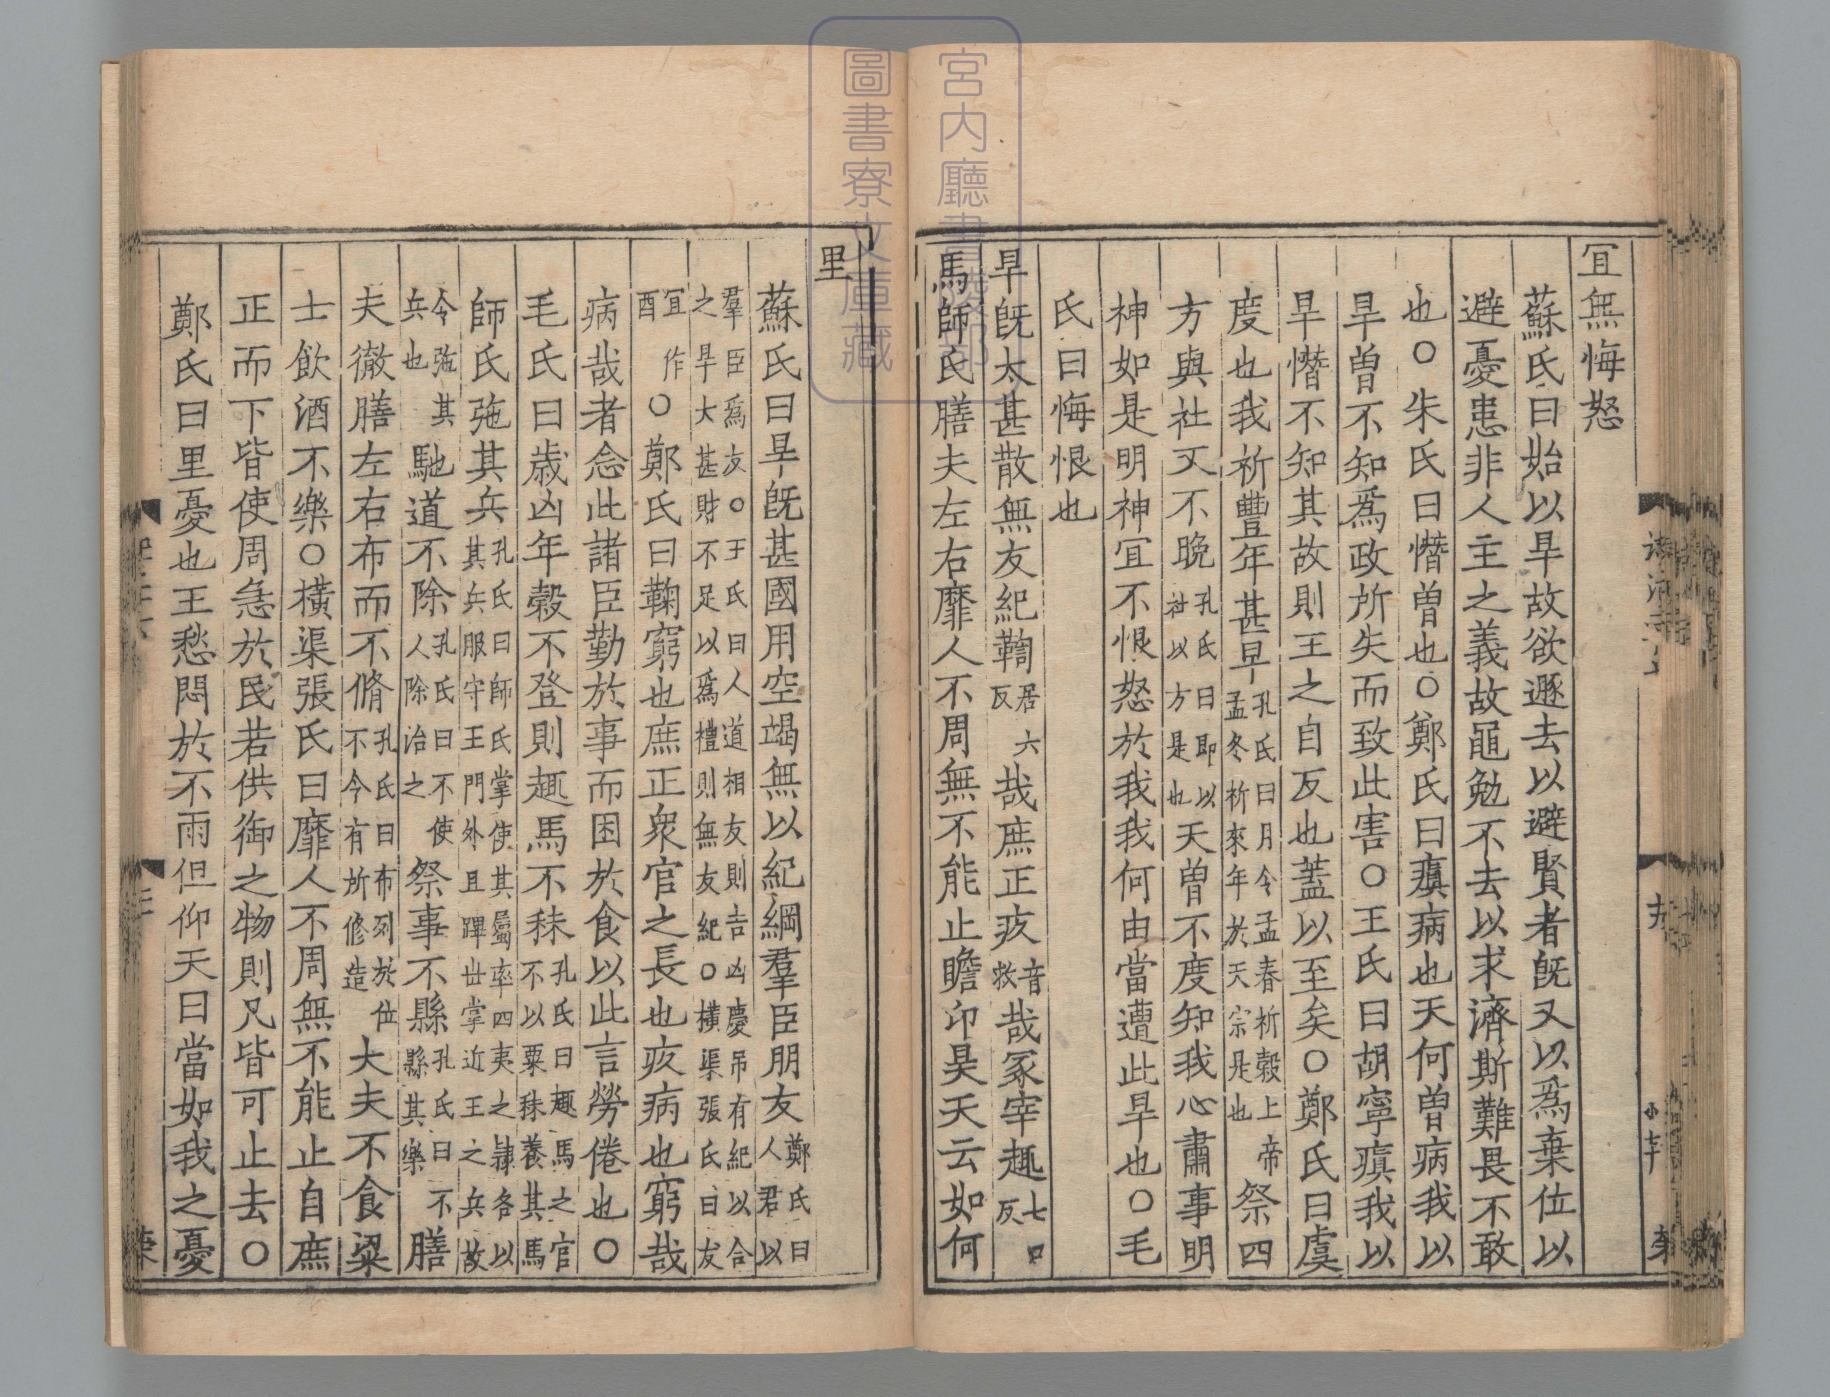 宜無悔怒
蘇氏曰始以旱故欲遯去以避賢者旣又以爲棄位以
避憂患非人主之義故黽勉不去以求濟斯難畏不敢
也○朱氏曰憯曽也○鄭氏曰瘨病也天何曽病我以
旱曽不知爲政所失而致此害○王氏曰胡寧瘨我以
旱憯不知其故則王之自反也蓋以至矣○鄭氏曰虞
度也我祈豐年甚早孔氏曰月令孟春祈穀上帝孟冬祈來年於天宗是也祭四
方與社又不晩孔氏曰即以社以方是也天曽不度知我心肅事明
神如是明神宜不恨怒於我我何由當遭此旱也○毛
氏曰悔恨也
旱旣太甚散無友紀鞫居六反哉庶正疚音救哉冢宰趣七口反
馬師氏膳夫左右靡人不周無不能止瞻卬昊天云如何
里
蘇氏曰旱旣甚國用空竭無以紀綱羣臣朋友鄭氏曰人君以
羣臣爲友○王氏曰人道相友則吉凶慶吊有紀以合之旱大甚財不足以爲禮則無友紀○橫渠張氏曰友
宜作酉○鄭氏曰鞫窮也庶正衆官之長也疚病也窮哉
病哉者念此諸臣勤於事而困於食以此言勞倦也○
毛氏曰歳凶年穀不登則趣馬不秣孔氏曰趣馬之官不以粟秣養其馬
師氏弛其兵孔氏曰師氏掌使其屬率四夷之隷各以其兵服守王門外且蹕丗掌近王之兵故
今弛其兵也馳道不除孔氏曰不使人除治之祭事不縣孔氏曰不縣其樂膳
夫徹膳左右布而不脩孔氏曰布列於位不令有所修造大夫不食粱
士飲酒不樂○橫渠張氏曰靡人不周無不能止自庶
正而下皆使周急於民若供御之物則凡皆可止去○
鄭氏曰里憂也王愁悶於不雨但仰天曰當如我之憂